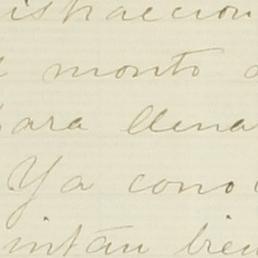 istraccion
monto
para llena
Ya cono
intan bien